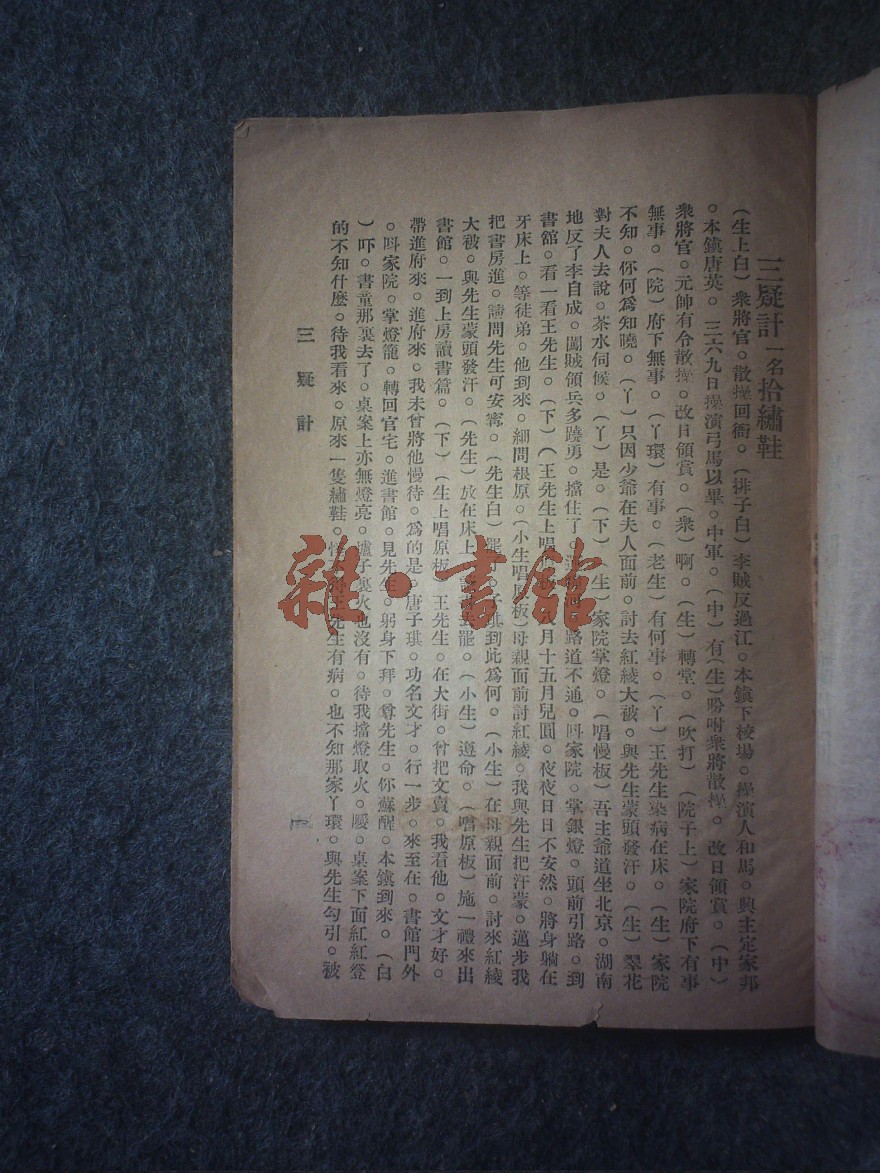 三疑計 一名拾繡鞋
（生上白）衆將官。散操回衙。（排子白）李賊反過江。本鎮下校場。操演人和馬。與主定家邦
。本鎮唐英。三六九日操演弓馬以畢。中軍。（中）有（生）吩咐衆將散操。改日領賞。（中）
衆將官。元帥有令散操。改日領賞。（衆）啊。（生）轉堂。（吹打）（院子上）家院府下有事
無事。（院）府下無事。（丫環）有事。（老生）有何事。（丫）王先生染病在床。（生）家院
不知。你何爲知曉。（丫）只因少爺在夫人面前。討去紅綾大被。與先生蒙頭發汗。（生）翠花
對夫人去說。茶水伺候。（丫）是。（下）（生）家院掌燈。（唱慢板）吾主爺道坐北京。湖南
地反了李自成。闖賊領兵多蹺勇。擋住了路道不通。叫家院。掌銀燈。頭前引路。到
書舘。看一看王先生。（下）（王先生上唱板）八月十五月兒圓。夜夜日日不安然。將身躺在
牙床上。等徒弟。他到來。細問根原。（小生唱原板）母親面前討紅綾。我與先生把汗蒙。邁步我
把書房進。請問先生可安寗。（先生白）罷。子琪到此爲何。（小生）在母親面前。討來紅綾
大被。與先生蒙頭發汗。（先生）放在床上。去罷。（小生）遵命。（唱原板）施一禮來出
書館。一到上房讀書篇。（下）（生上唱原板）王先生。在大街。曾把文賣。我看他。文才好。
帶進府來。進府來。我未曾將他慢待。爲的是。唐子琪。功名文才。行一步。來至在。書館門外
。叫家院。掌燈籠。轉回官宅。進書館。見先生。躬身下拜。尊先生。你蘇醒。本鎮到來。（白
）吓。書童那裏去了。桌案上亦無燈亮。爐子裏火也沒有。待我擋燈取火。噯。桌案下面紅紅登
的不知什麼。待我看來。原來一隻繡鞋。王先生有病。也不知那家丫環。與先生勾引。被
三疑計
三
雜·書舘